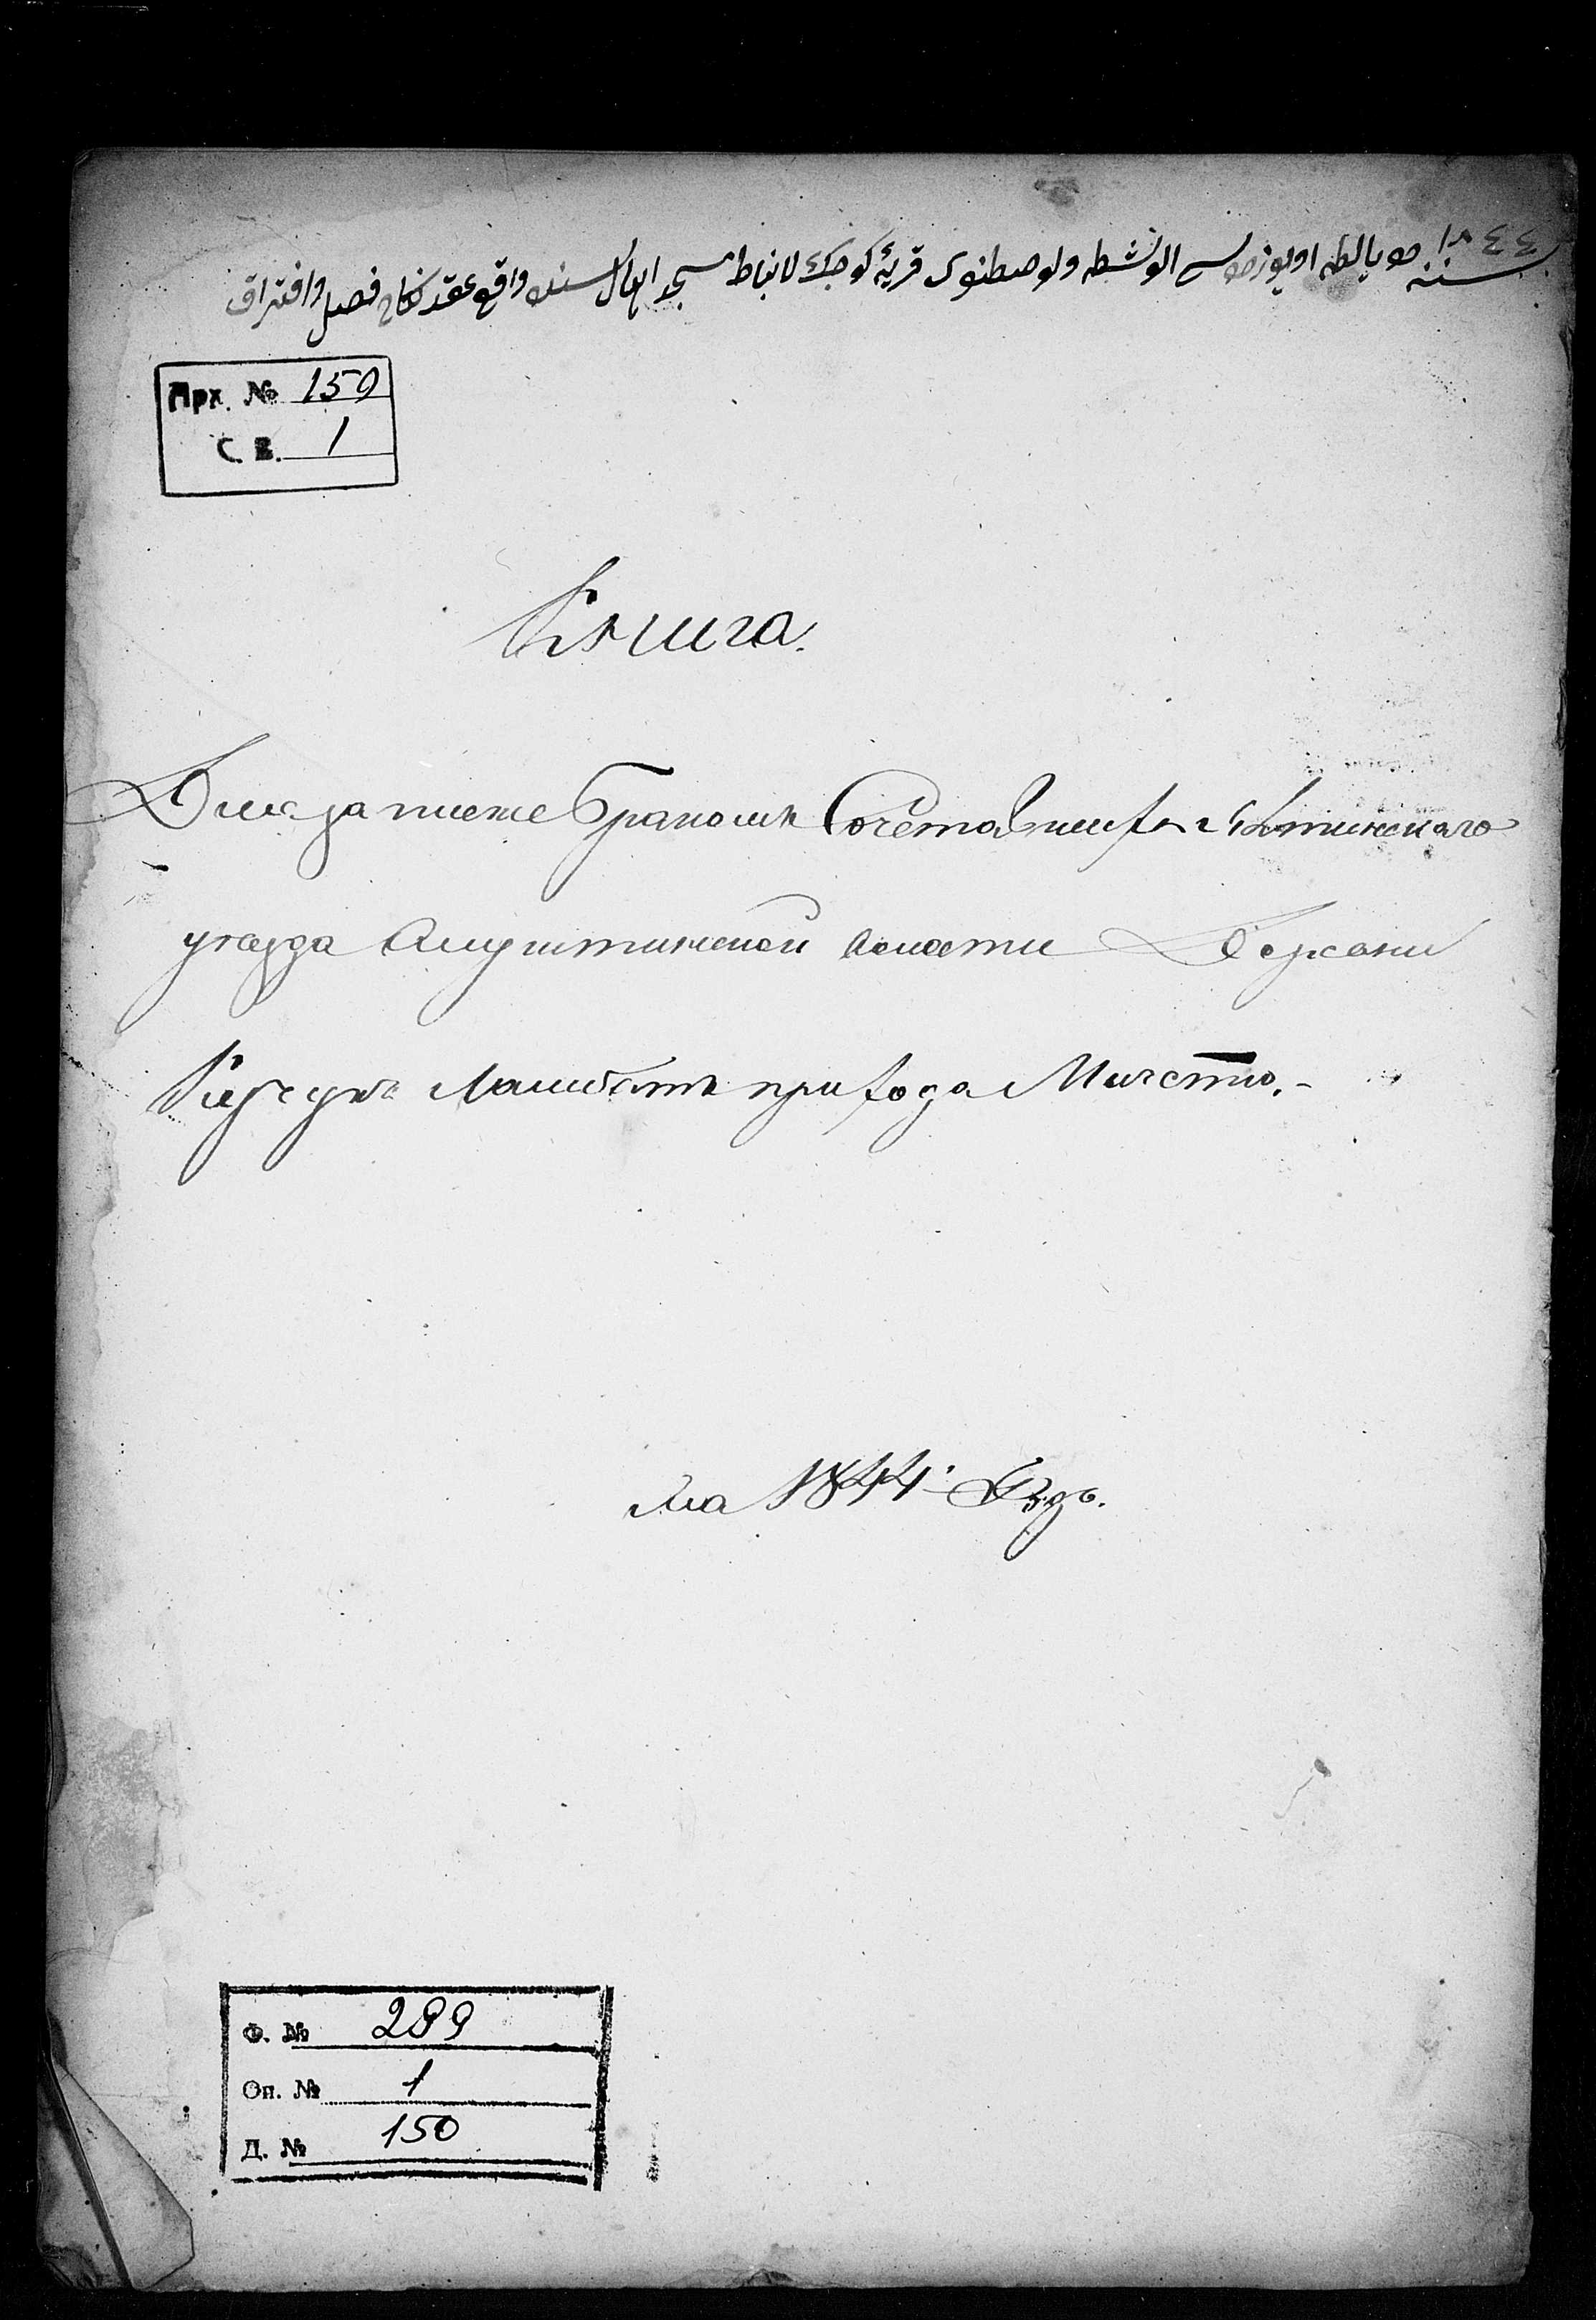 ١٨٤٤
سنه ده يالطه اويوزده الوشطه ولوصطنوى قريۀ كوچك لانباط مسجد اهاليسنده واقع عقد نكاح فصل وافتراق
Арх. № 150
Св. 1
Книга.
Для записке Бракомъ Сочетавшихъ Ялтинскаго
уезда Алуштинской волости Деревни
Кучукъ Ламбатъ прихода Мичетю.-
на 1844 Годъ.
Ф. № 289
Оп. № 1
Д. № 150